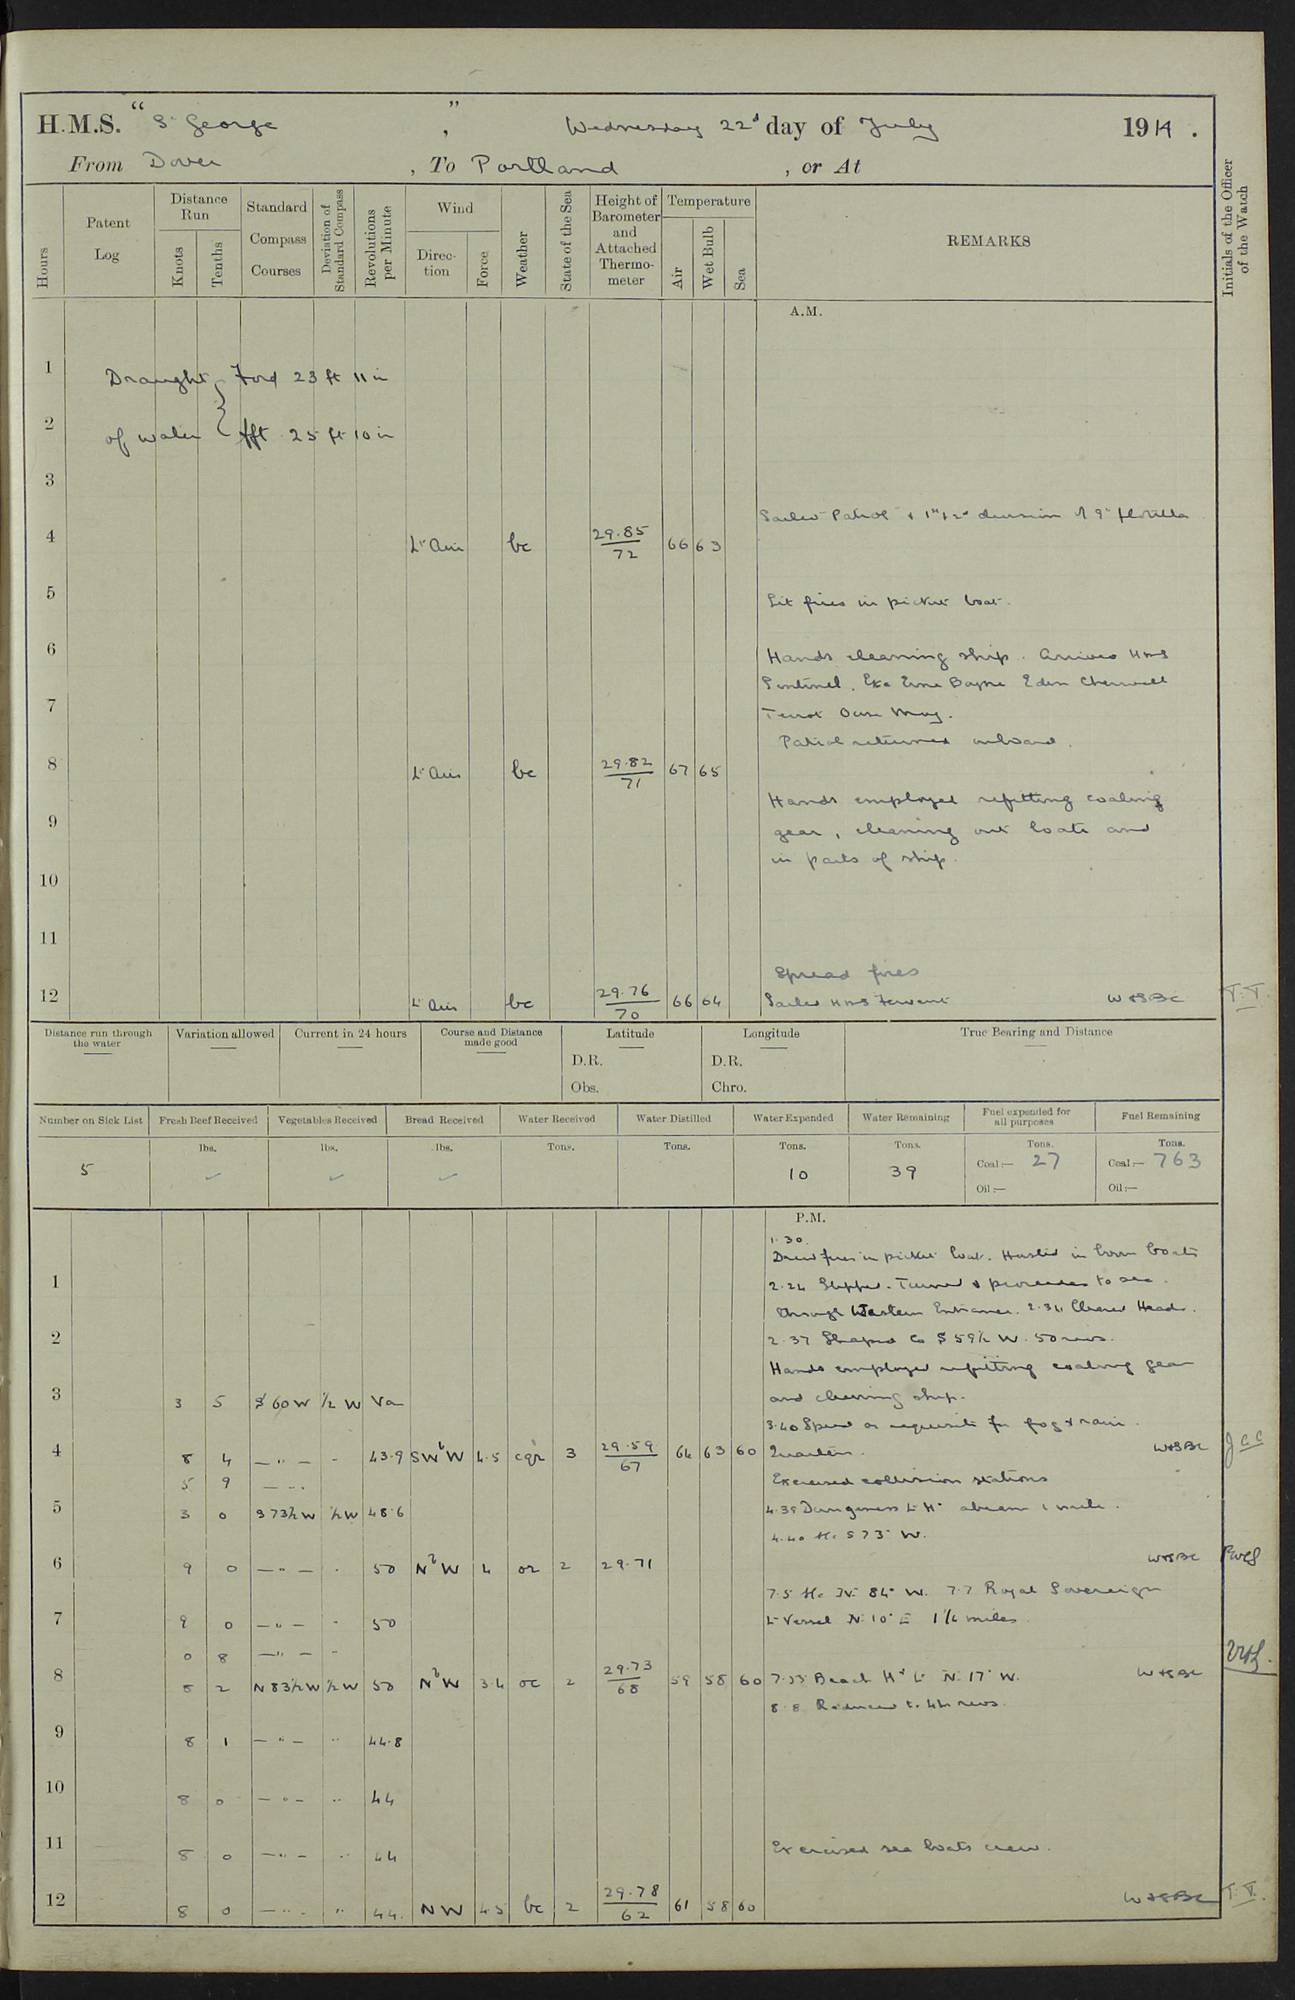 H.M.S. " St George " , Wednesday 22d day of July 1914 .
From Dover , To Portland , or At
Hours
Patent Log
Distance Run
Knots
Tenths
Standard Compass Courses
Deviation of Standard Compass
Revolutions per Minute
Wind
Direction
Force
Weather
State of the Sea
Height of Barometer and Attached Thermometer
Temperature
Air
Wet Bulb
Sea
REMARKS
Initials of the Officer of the Watch
A.M.
1 Draught Ford 23 ft 11 in
2 of water Aft 25 ft 10 in
3
Sailed Patrol + 1st + 2nd division of 9th flotilla
4 Lt Airs bc 29.85 72 66 63
5
Lit fires in picket boat.
6 Hands cleaning ship. Arrived HMS
Sentinel, Exe Erne Boyne Eden Cherwell
7 Teviot Ouse May.
Patrol returned onboard.
8 Lt Airs bc 29.82 71 67 65
Hands employed refitting coaling
9 gear, cleaning out boats and
in parts of ship.
10
11
Spread fires
12 Lt Airs bc 29.76 70 66 64 Sailed HMS Fervent W H S B C T.T.
Distance run through the water
Variation allowed
Current in 24 hours
Course and Distance made good
Latitude
D.R.
Obs.
Longitude
D.R.
Chro.
True Bearing and Distance
Number on Sick List
Fresh Beef Received
Vegetables Received
Bread Received
Water Received
Water Distilled
Water Expended
Water Remaining
Fuel expended for all purposes
Fuel Remaining
lbs. lbs. lbs. Tons. Tons. Tons. Tons. Tons. Tons.
5 ✓ ✓ ✓ 10 39 Coal:— 27 Coal:— 763
Oil:— Oil:—
P.M.
1.30.
Drew fires in picket boat. Hoisted in boom boats
1 2.24 Slipped. Turned & proceeded to sea.
through Western Entrance. 2.34 Cleared Heads.
2 2.37 Shaped Co S 59½ W. 50 revs.
Hands employed refitting coaling gear
3 3 5 S 60 W ½ W Va and cleaning ship.
3.40 Speed as requisite for fog & rain.
4 8 4 — " — " 43.9 SWbW 4.5 cqr 3 29.59 67 64 63 60 Quarters. W H S B C J C C
5 9 — " — Exercised collision stations
5 3 0 S 73½ W ½ W 48.6 4.35 Dungeness Lt Ho abeam 1 mile.
4.40 A/c S 73° W.
6 9 0 — " — " 50 NbW 4 or 2 29.71 W H S B C
7.5 A/c N 84° W. 7.7 Royal Sovereign
7 9 0 — " — " 50 Lt Vessel N 10° E 1¼ miles.
0 8 — " — "
8 8 2 N 83½ W ½ W 50 NbW 3.4 oc 2 29.73 68 59 58 60 7.55 Beach Hd Lt N 17° W. W H S B C
8.8 Reduced to 44 revs.
9 8 1 — " — " 44.8
10 8 0 — " — " 44
11 8 0 — " — " 44 Exercised sea boats crew.
12 8 0 — " — " 44. NW 4.5 bc 2 29.78 62 61 58 60 W H S B C T.T.